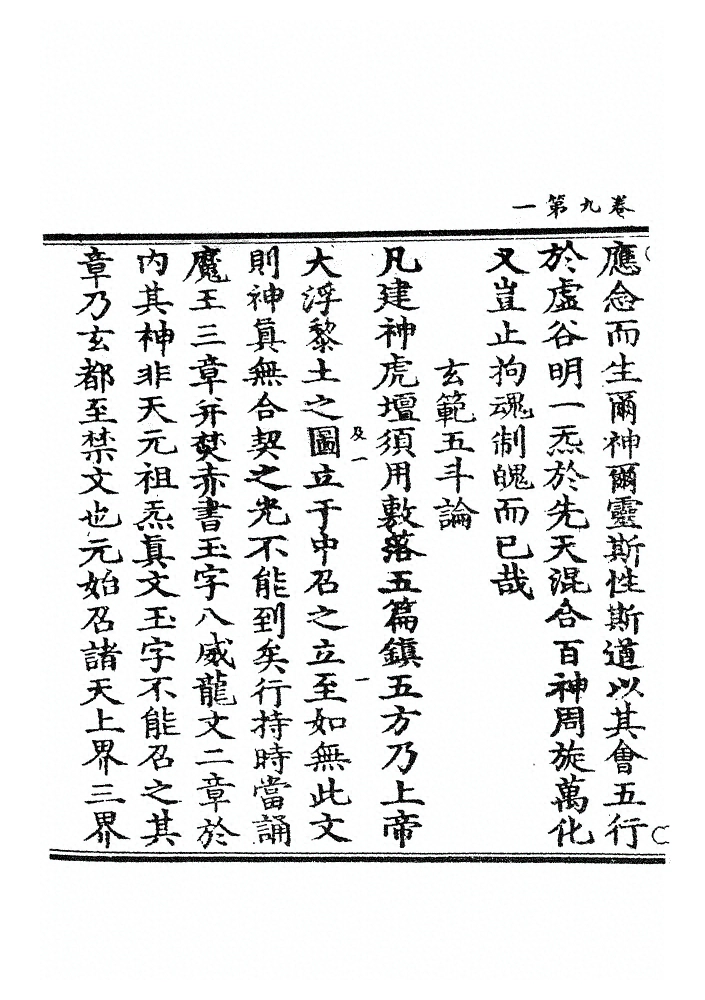 卷九第一
應念而生爾神爾靈斯性斯道以其會五行
於虛谷明一炁於先天混合百神周旋萬化
又豈止拘魂制魄而已哉
玄範五斗論
凡建神虎壇須用敷落五篇鎮五方乃上帝
及一
一
大浮黎土之圖立于中召之立至如無此文
則神眞無合契之光不能到矣行持時當誦
魔王三章并焚赤書玉字八威龍文二章於
內其神非天元祖炁眞文玉字不能召之其
章乃玄都至禁文也元始召諸天上界三界